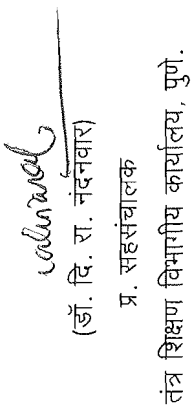 (डॉ. दि. रा. नंदनवार)
प्र. सहसंचालक
तंत्र शिक्षण विभागीय कार्यालय, पुणे.